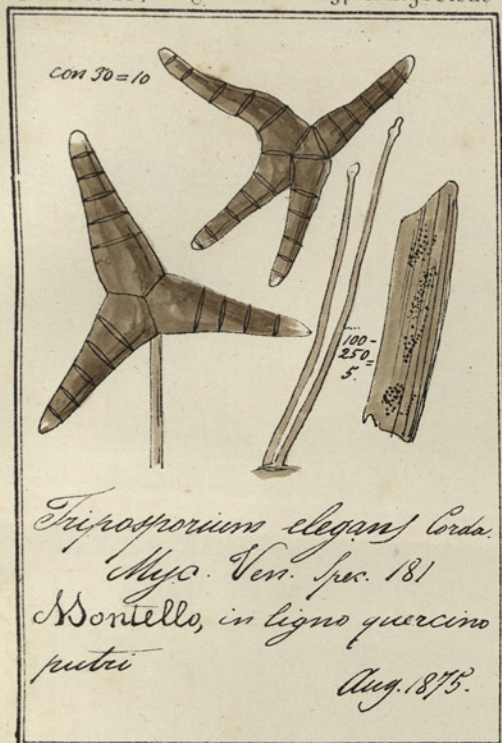 con 30=10
100-
250=
5.
Triposporium elegans Corda.
Myc. Ven. Spec. 181
Montello, in ligno quercino
putri
Aug. 1875.